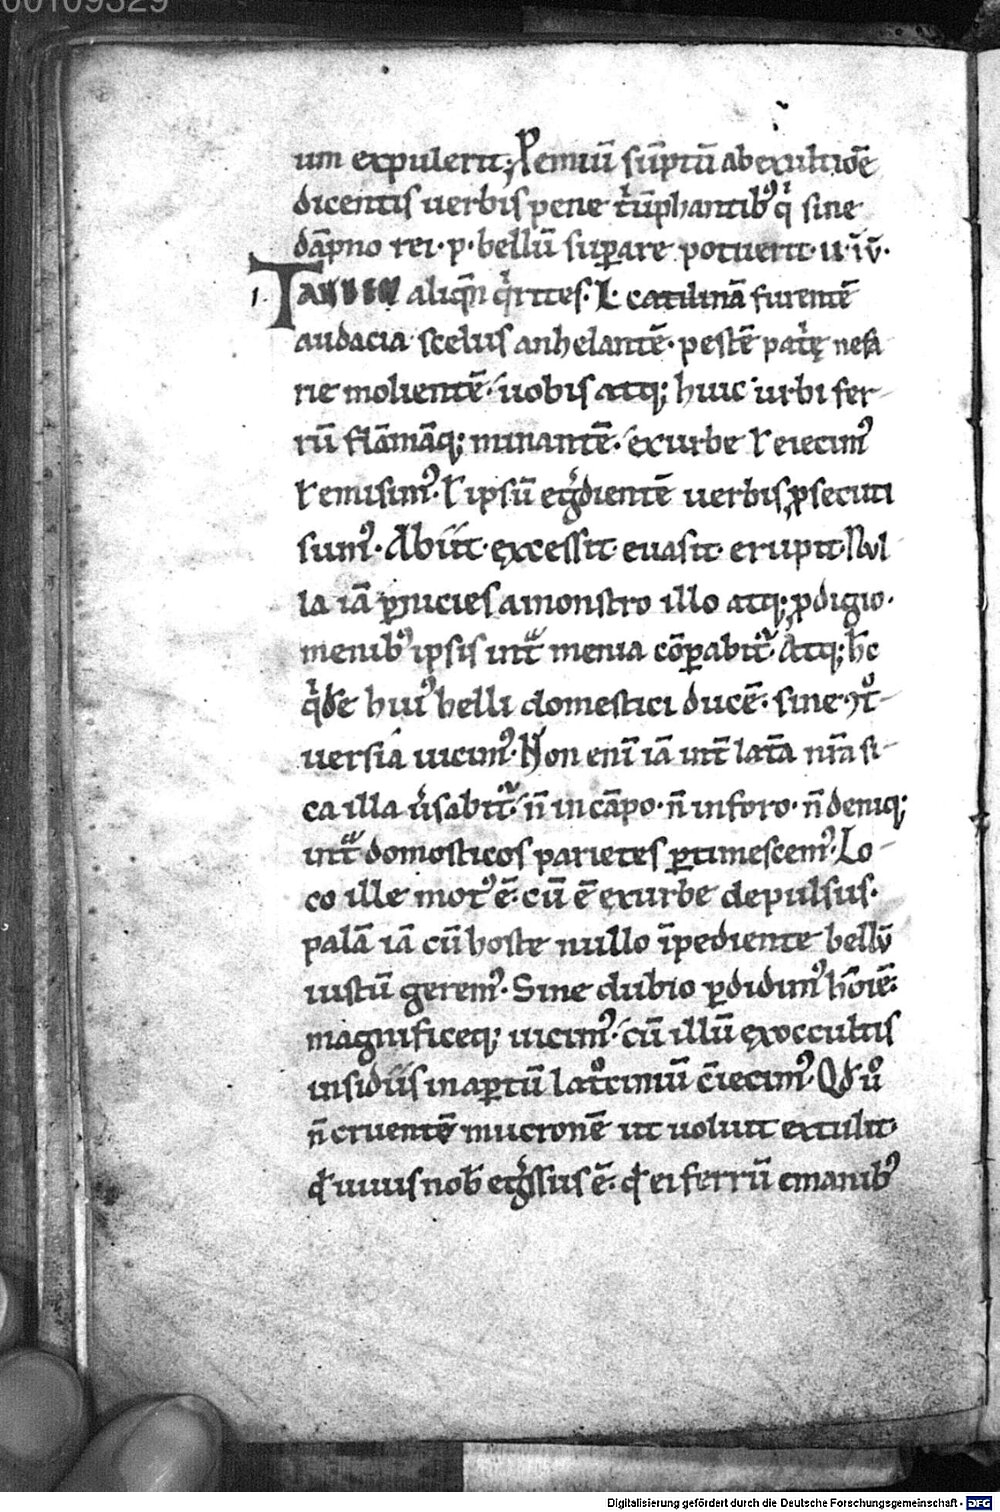 00109329
um expulerit; Pemiū sūptū ab exultatiōe
dicentis uerbis pene tͥūphantib᾽ qͥ sine
dāpno rei· p· bellū suꝑare potuerit· u· iū·
I. Tandē aliqn̄ qͥrites· L· catilinā furentē
audacia· scelus anhelantē· pestē patͥę nefa
rie molientē· uobis atq; huic urbi fer-
rū flāmāq; minantē· ex urbe ł eiecim᾽
ł emisim᾽· ł ipsū egͬdientē uerbis ꝓsecuti
sum᾽· Abiit· excessit· euasit· erupit· Nul
la iā ꝑnicies a monstro illo atq; ꝓdigio·
menib᾽ ipsis intͣ menia cōꝑabit᾽· Atq; hc̄
qͥdē hui᾽ belli domestici ducē· sine ꝯtͦ-
uersia uicim᾽· Non eni iā int̄ latā nr̄a si-
ca illa ūsabit᾽· n̄ in cāpo· n̄ in foro· n̄ deniq;
intͣ domosticos parietes ꝑtimescem᾽· Lo-
co ille mot᾽ ē· cū ē ex urbe depulsus·
palā iā cū hoste nullo īpediente bellū
iustū gerem᾽· Sine dubio ꝑdidim᾽ hōiē·
magnificeq; uicim᾽· cū illū ex occultis
insidiis in aꝑtū latͦciniū c̄iecim᾽· Qd uͦ
n̄ cruentē mucronē ut uoluit extulit·
qd uiuis nob̄ egͬssus ē· qd ei ferrū e manib᾽
Digitalisierung gefördert durch die Deutsche Forschungsgemeinschaft - DFG